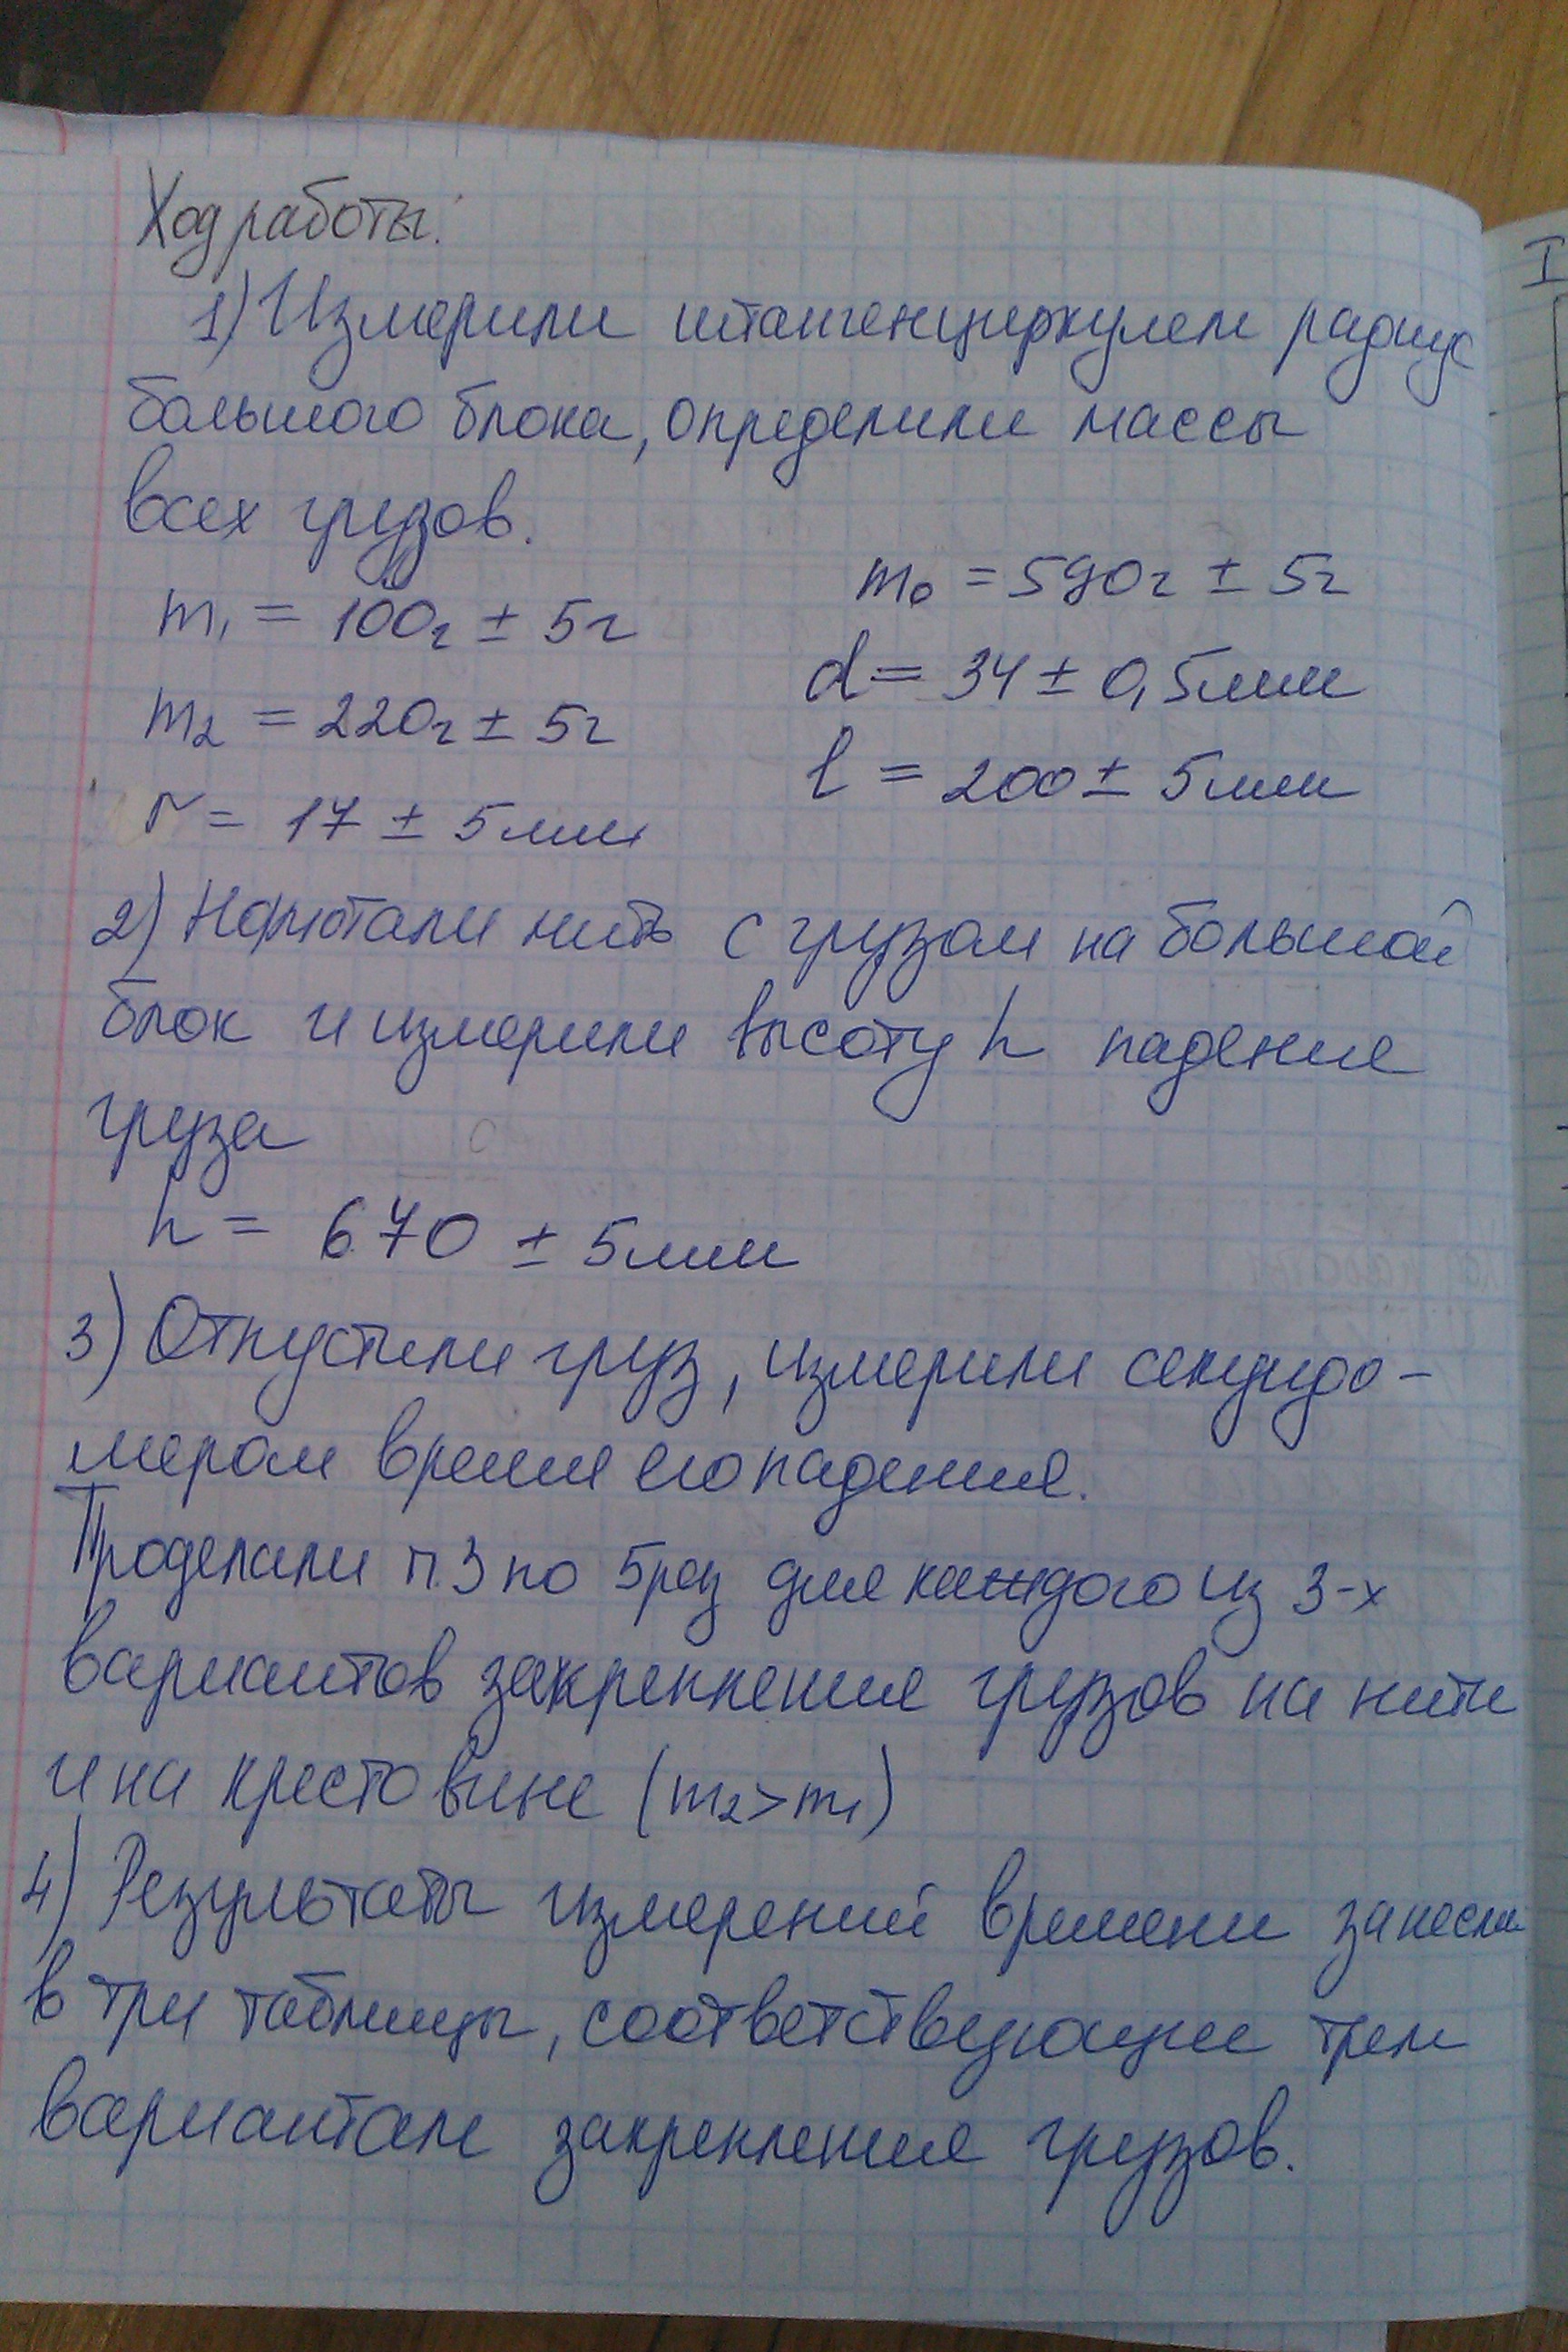 Ход работы:
1) Измерили штангенциркулем радиус
большого блока, определили массы
всех грузов.
m₁ = 100г ± 5г
m₂ = 220г ± 5г
r = 17 ± 5мм
m₀ = 590г ± 5г
d = 34 ± 0,5мм
l = 200 ± 5мм
2) Намотали нить с грузом на большой
блок и измерили высоту h падения
груза
h = 670 ± 5мм
3) Отпустили груз, измерили секундо-
мером время его падения.
Проделали п.3 по 5 раз для каждого из 3-х
вариантов закрепления грузов на нити
и на крестовине (m₂>m₁)
4) Результаты измерений времени занесли
в три таблицы, соответствующие трем
вариантам закрепления грузов.
I